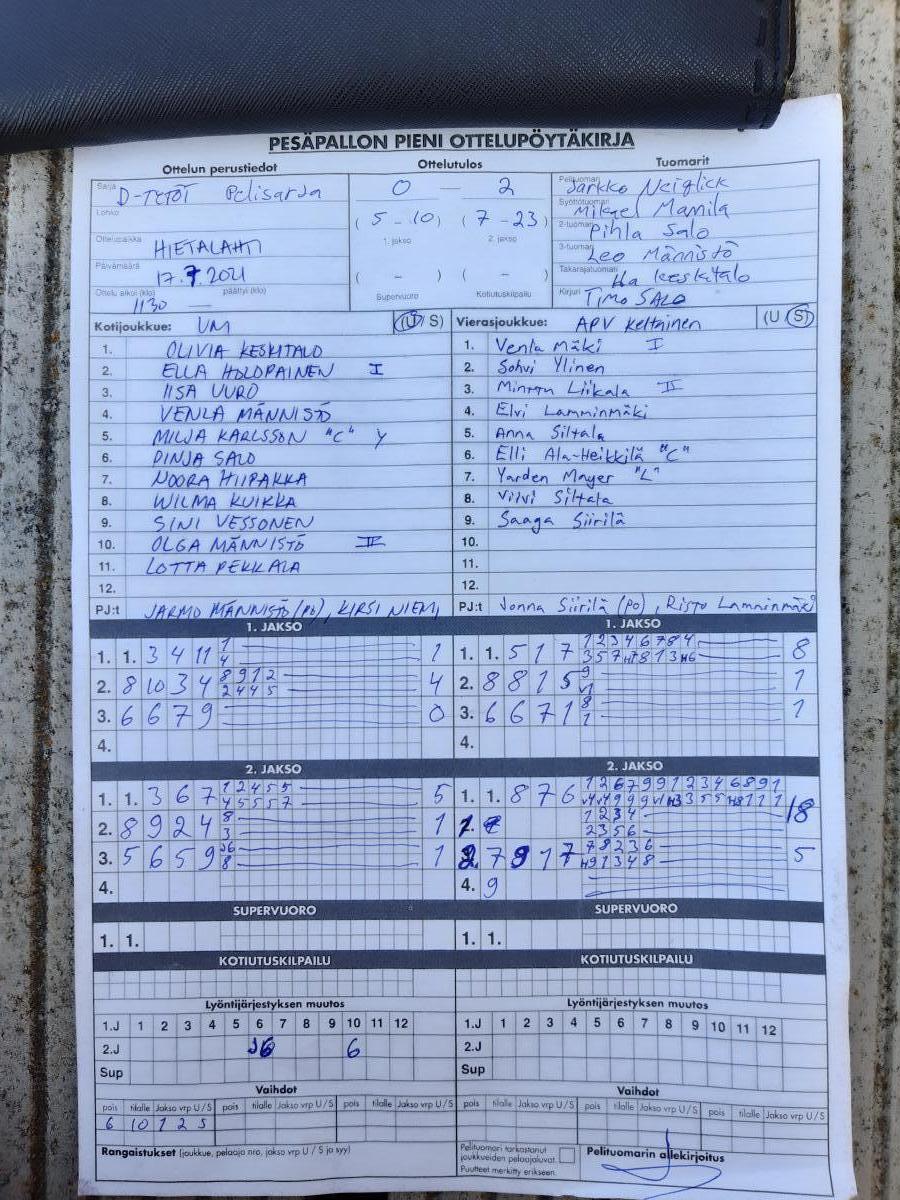 PESÄPALLON PIENI OTTELUPÖYTÄKIRJA
Ottelun perustiedot Ottelutulos Tuomarit
Sarja D-TYTÖT Pelisarja
Lohko
Ottelupaikka HIETALAHTI
Päivämäärä 17.7.2021
Ottelu alkoi (klo) 1130 päättyi (klo)
0 — 2
(5 - 10) (7 - 23)
1. jakso 2. jakso
( - ) ( - )
Supervuoro Kotiutuskilpailu
Pelituomari Jarkko Neiglick
Syöttötuomari Mikael Mannila
2-tuomari Pihla Salo
3-tuomari Leo Männistö
Takarajatuomari Keskitalo
Kirjuri TIMO SALO
Kotijoukkue: UM (U/S)
1. OLIVIA KESKITALO
2. ELLA HOLOPAINEN I
3. IISA UURO
4. VENLA MÄNNISTÖ
5. MILJA KARLSSON "C" Y
6. PINJA SALO
7. NOORA HIIPAKKA
8. WILMA KUIKKA
9. SINI VESSONEN
10. OLGA MÄNNISTÖ
11. LOTTA PEKKALA
12.
PJ:t JARMO MÄNNISTÖ (PO), KIRSI NIEMI
Vierasjoukkue: APV Keltainen (U/S)
1. Venla Mäki I
2. Sohvi Ylinen
3. Minttu Liikala II
4. Elvi Lamminmäki
5. Anna Siltala
6. Elli Ala-Heikkilä "C"
7. Yarden Mayer "L"
8. Vilvi Siltala
9. Saaga Siirilä
10.
11.
12.
PJ:t Jonna Siirilä (po), Risto Lamminmäki
1. JAKSO
1. 1. 3 4 11 1 1
4
2. 8 10 3 4 8 9 1 2 4
2 4 4 5
3. 6 6 7 9 0
4.
1. JAKSO
1. 1. 5 1 7 1 2 3 4 6 7 8 4 8
2. 8 8 1 5 9 1
3. 6 6 7 1 8 1
1
4.
2. JAKSO
1. 1. 3 6 7 1 2 4 5 5 5
4 5 5 5 7
2. 8 9 2 4 8 1
3
3. 5 6 5 9 1
8
4.
2. JAKSO
1. 1. 8 7 6 1 2 6 7 9 9 1 2 3 4 6 8 9 1 18
1 2 3 4
2 3 5 6
7 9 1 7 7 8 2 3 6 5
4. 9
SUPERVUORO
1. 1.
SUPERVUORO
1. 1.
KOTIUTUSKILPAILU
KOTIUTUSKILPAILU
Lyöntijärjestyksen muutos
1.J 1 2 3 4 5 6 7 8 9 10 11 12
2.J 6
Sup
Lyöntijärjestyksen muutos
1.J 1 2 3 4 5 6 7 8 9 10 11 12
2.J
Sup
Vaihdot
pois tilalle Jakso vrp U/S pois tilalle Jakso vrp U/S pois tilalle Jakso vrp U/S
6 10 1 2 S
Vaihdot
pois tilalle Jakso vrp U/S pois tilalle Jakso vrp U/S pois tilalle Jakso vrp U/S
Rangaistukset (joukkue, pelaaja nro, jakso vrp U / S ja syy)
Pelituomari tarkastanut
joukkueiden pelaajaluvat.
Puutteet merkitty erikseen.
Pelituomarin allekirjoitus